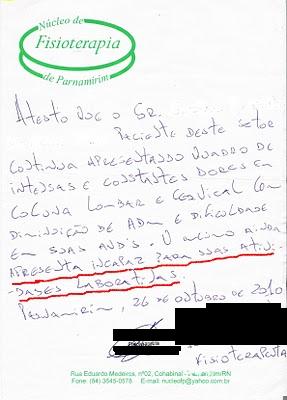 Núcleo de
Fisioterapia
de Parnamirim
Atesto que o Sr.
Paciente deste setor
continua apresentando quadro de
intensas e constantes dores em
coluna lombar e cervical com
diminuição de ADM e dificuldade
em suas AVDs. O mesmo ainda
apresenta incapaz para suas ativi-
-dades laborativas.
Parnamirim, 26 de outubro de 2010
Fisioterapeuta
Rua Eduardo Medeiros, nº02, Cohabinal - Parnamirim/RN
Fone: (84) 3645-0578 E-mail: nucleofp@yahoo.com.br